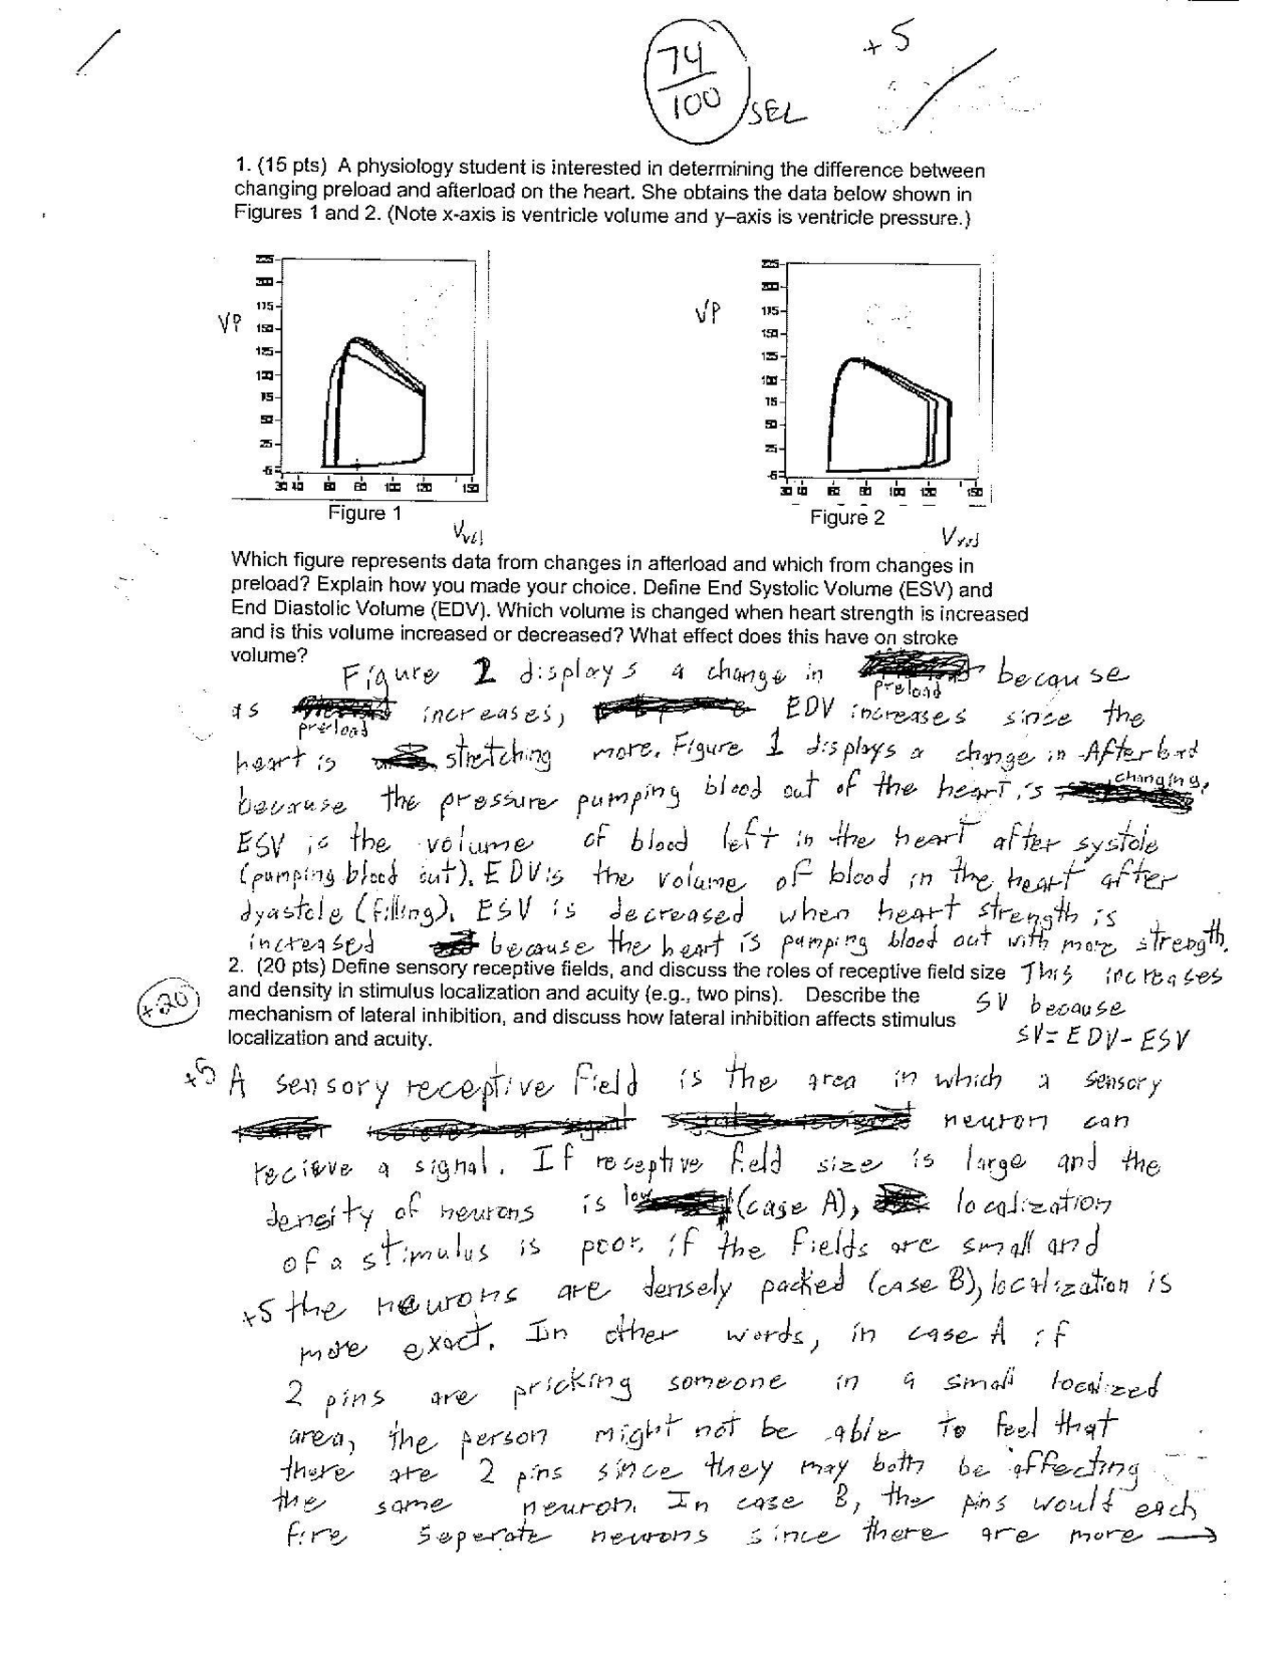 74
100
SEL
+5
1. (15 pts) A physiology student is interested in determining the difference between
changing preload and afterload on the heart. She obtains the data below shown in
Figures 1 and 2. (Note x-axis is ventricle volume and y–axis is ventricle pressure.)
VP
225
200
175
150
125
100
75
50
25
-5
30 40 60 80 100 120 150
Figure 1
Vvol
VP
225
200
175
150
125
100
75
50
25
-5
30 40 60 80 100 120 150
Figure 2
Vvol
Which figure represents data from changes in afterload and which from changes in
preload? Explain how you made your choice. Define End Systolic Volume (ESV) and
End Diastolic Volume (EDV). Which volume is changed when heart strength is increased
and is this volume increased or decreased? What effect does this have on stroke
volume?
Figure 2 displays a change in preload because
as preload increases, EDV increases since the
heart is stretching more. Figure 1 displays a change in Afterload
because the pressure pumping blood out of the heart is changing.
ESV is the volume of blood left in the heart after systole
(pumping blood out). EDV is the volume of blood in the heart after
dyastole (filling). ESV is decreased when heart strength is
increased because the heart is pumping blood out with more strength.
This increases
SV because
SV = EDV - ESV
2. (20 pts) Define sensory receptive fields, and discuss the roles of receptive field size
and density in stimulus localization and acuity (e.g., two pins). Describe the
mechanism of lateral inhibition, and discuss how lateral inhibition affects stimulus
localization and acuity.
+20
+5 A sensory receptive field is the area in which a sensory
neuron can
recieve a signal. If receptive field size is large and the
density of neurons is low (case A), localization
of a stimulus is poor. if the fields are small and
+5 the neurons are densely packed (case B), localization is
more exact. In other words, in case A if
2 pins are pricking someone in a small localized
area, the person might not be able to feel that
there are 2 pins since they may both be affecting
the same neuron. In case B, the pins would each
fire seperate neurons since there are more →